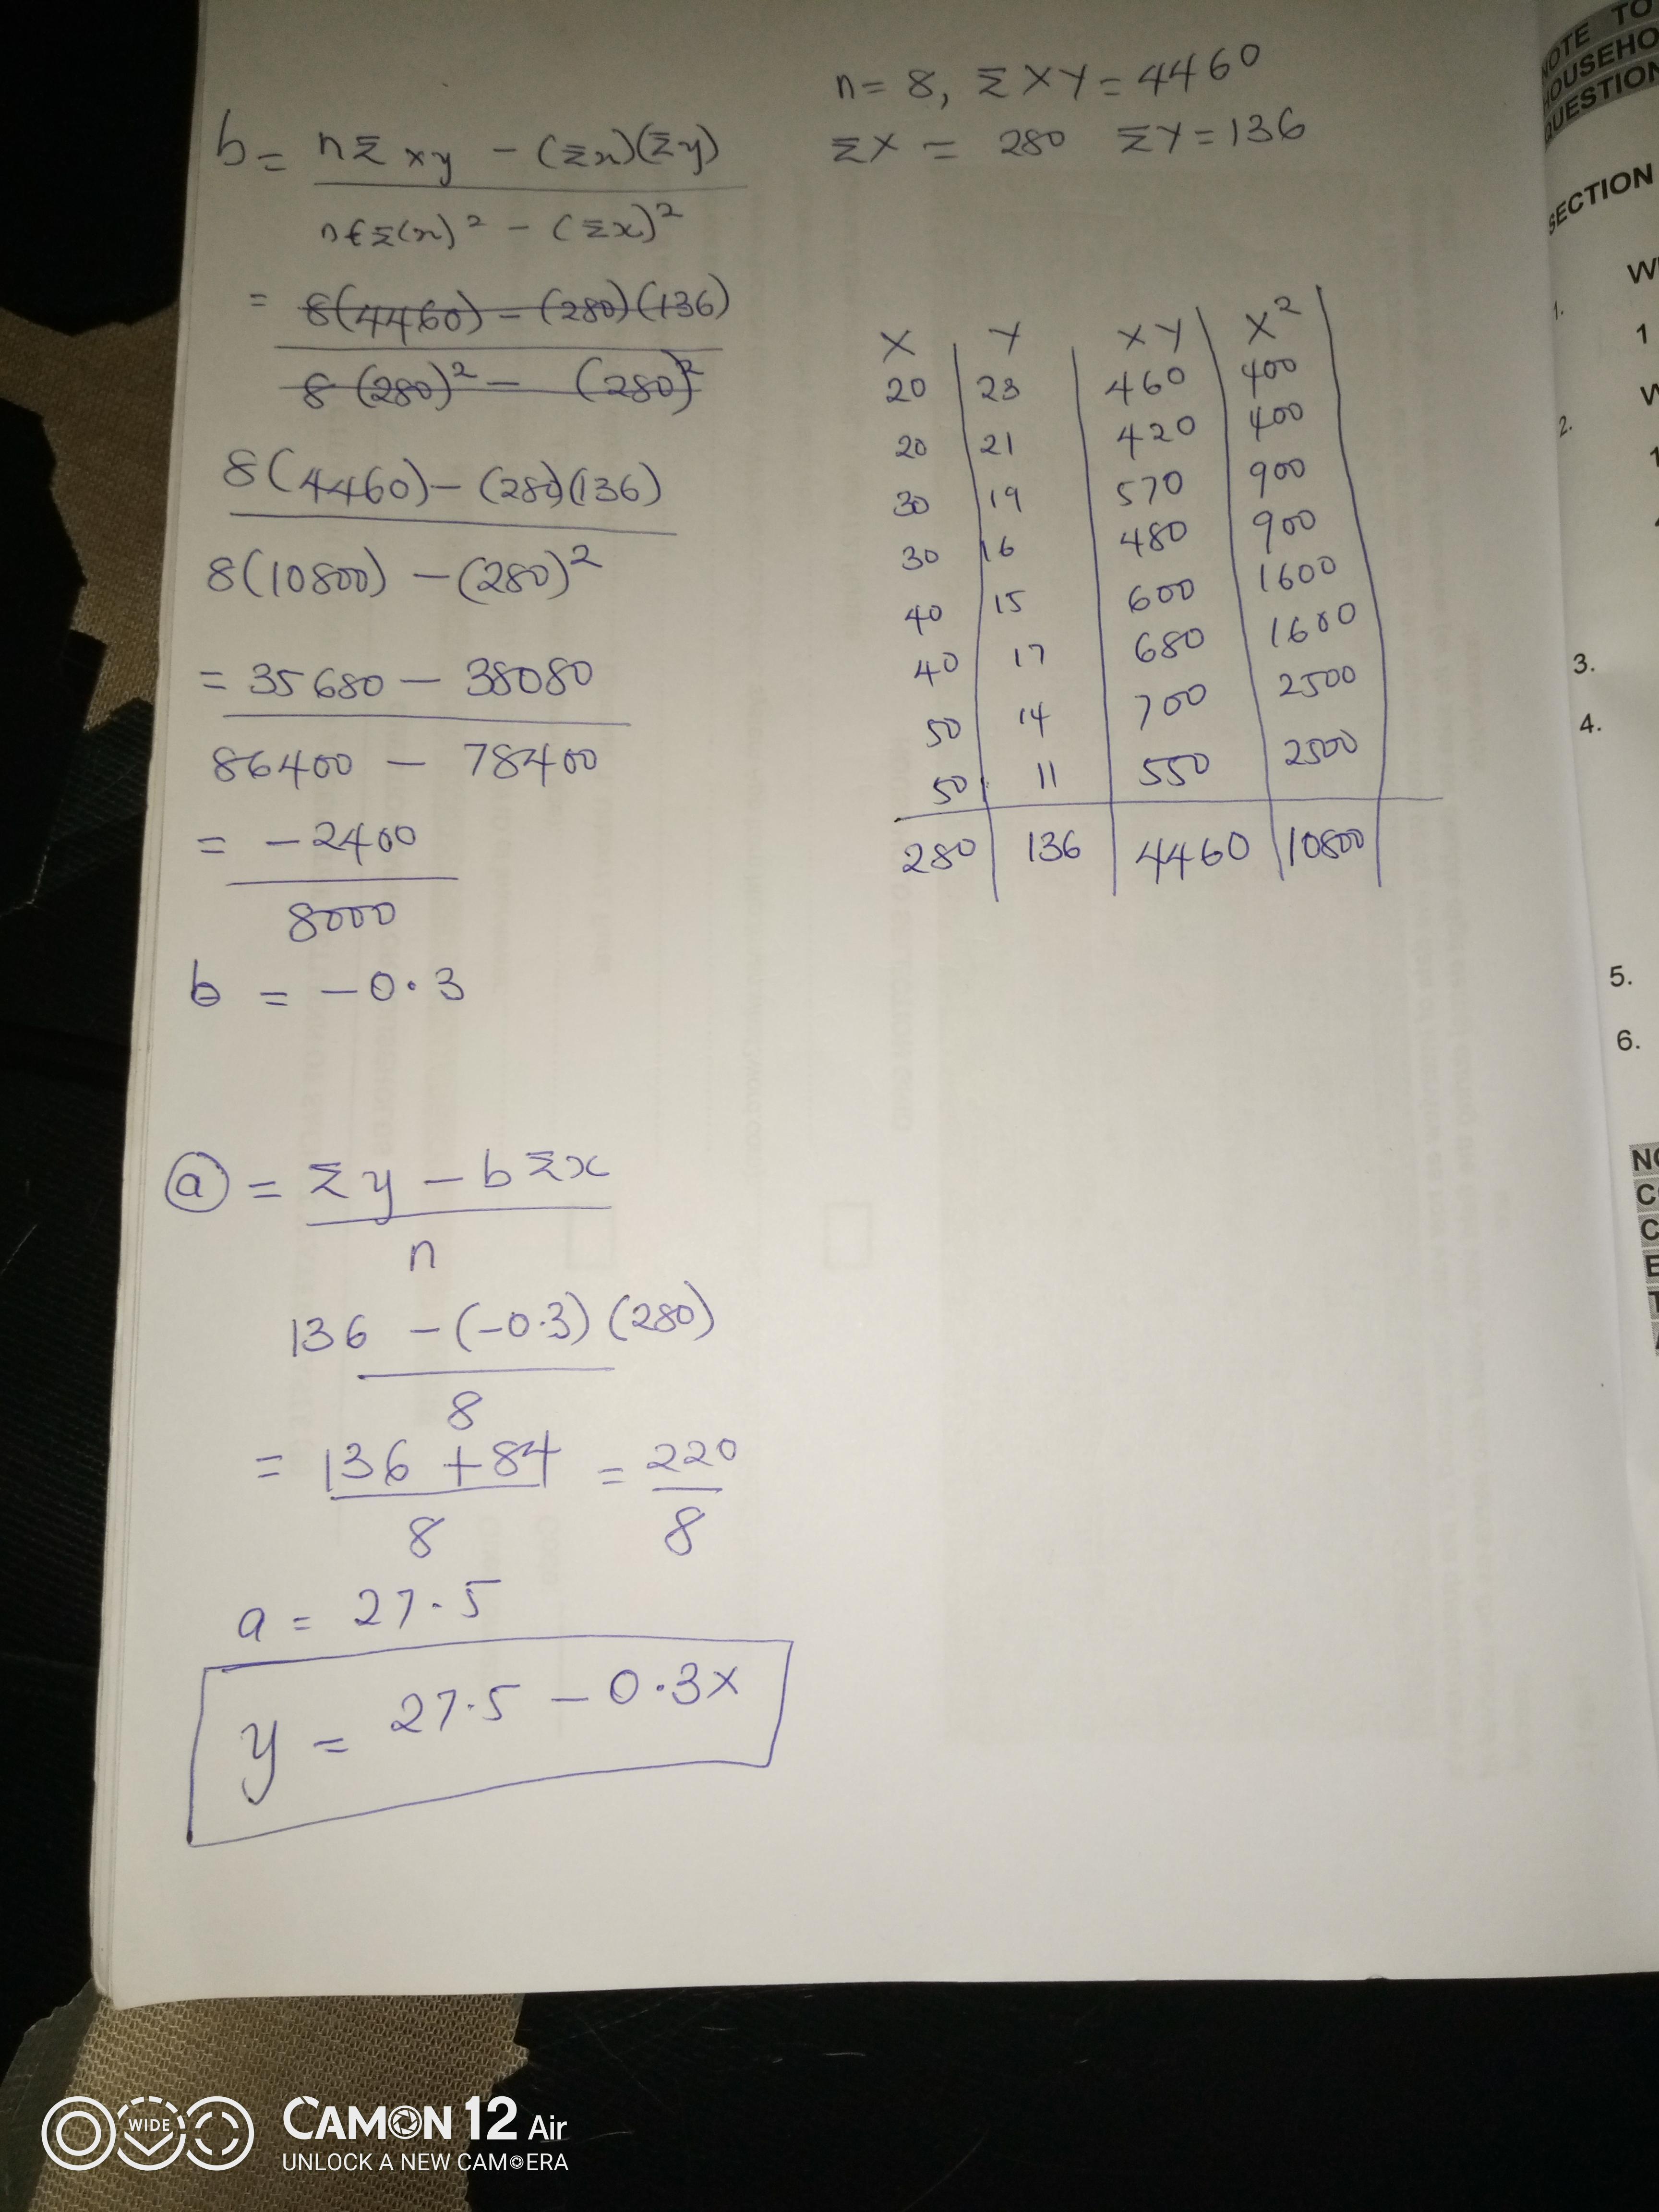 n = 8, ΣXY = 4460
ΣX = 280 ΣY = 136
b = nΣxy - (Σx)(Σy)
nΣ(x)² - (Σx)²
= 8(4460) - (280)(136)
8(280)² - (280)²
8(4460) - (280)(136)
8(10800) - (280)²
= 35680 - 38080
86400 - 78400
= -2400
8000
b = -0.3
X Y XY X²
20 23 460 400
20 21 420 400
30 19 570 900
30 16 480 900
40 15 600 1600
40 17 680 1600
50 14 700 2500
50 11 550 2500
280 136 4460 10800
a = Σy - bΣx
n
136 - (-0.3)(280)
8
= 136 + 84 = 220
8 8
a = 27.5
y = 27.5 - 0.3x
NOTE TO
HOUSEHO
QUESTION
SECTION
1.
1
2.
3.
4.
5.
6.
WIDE
CAMON 12 Air
UNLOCK A NEW CAMERA